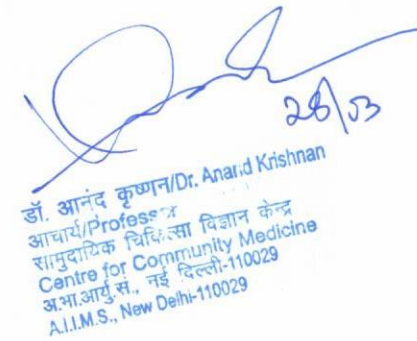 28/03
डॉ. आनंद कृष्णन/Dr. Anand Krishnan
आचार्य/Professor
सामुदायिक चिकित्सा विज्ञान केन्द्र
Centre for Community Medicine
अ.भा.आयु.सं., नई दिल्ली-110029
A.I.I.M.S., New Delhi-110029